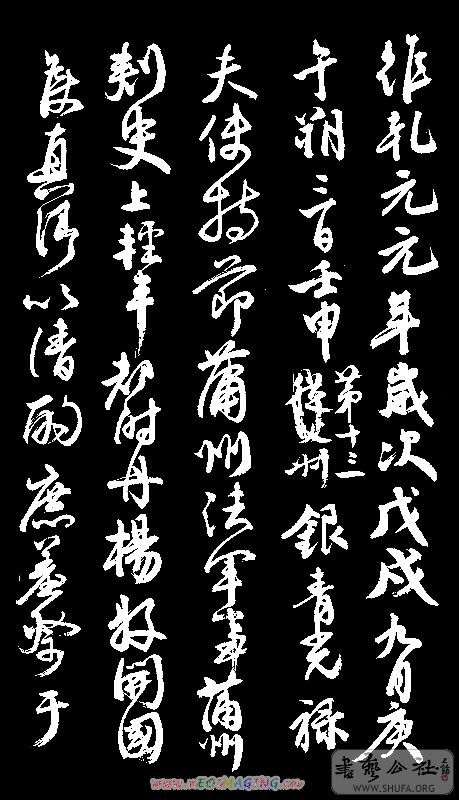 維乾元元年歲次戊戌九月庚
午朔三日壬申第十三從父叔銀青光祿
夫使持節蒲州諸軍事蒲州
刺史上輕車都尉丹楊縣開國
侯真卿以清酌庶羞祭于
書藝公社
WWW.SHUFA.ORG